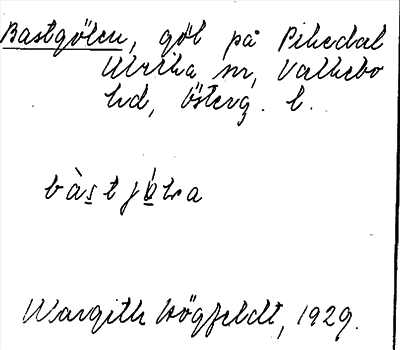 Bastgölen, göl på Pikedal
Ulrika sn, Valkebo
hd, Österg. l.
bàstjö́lra
Margith Högfeldt, 1929.